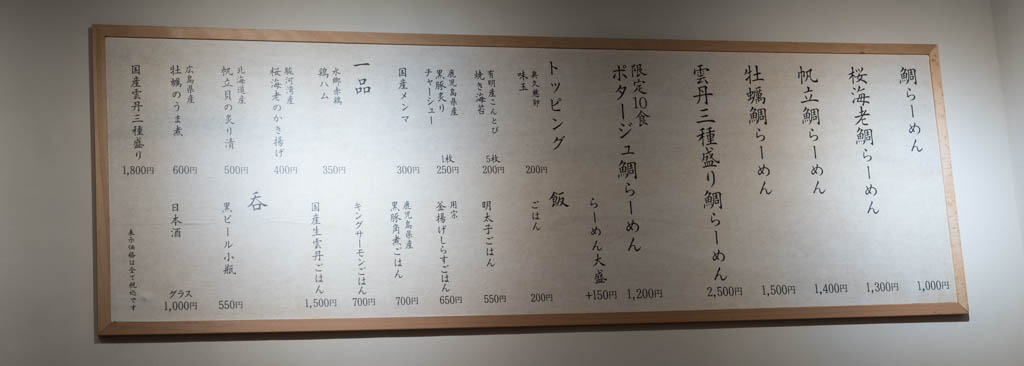 鯛らーめん
1,000円
桜海老鯛らーめん
1,300円
帆立鯛らーめん
1,400円
牡蠣鯛らーめん
1,500円
雲丹三種盛り鯛らーめん
2,500円
限定10食
ポタージュ鯛らーめん
1,200円
らーめん大盛
+150円
トッピング
奥久慈卵
味玉
200円
有明産こんとび
焼き海苔
5枚
200円
鹿児島県産
黒豚炙り
チャーシュー
1枚
250円
国産メンマ
300円
一品
水郷赤鶏
鶏ハム
350円
駿河湾産
桜海老のかき揚げ
400円
北海道産
帆立貝の炙り漬
500円
広島県産
牡蠣のうま煮
600円
国産雲丹三種盛り
1,800円
飯
ごはん
200円
明太子ごはん
550円
用宗
釜揚げしらすごはん
650円
鹿児島県産
黒豚角煮ごはん
700円
キングサーモンごはん
700円
国産生雲丹ごはん
1,500円
呑
黒ビール小瓶
550円
日本酒
グラス
1,000円
表示価格は全て税込です